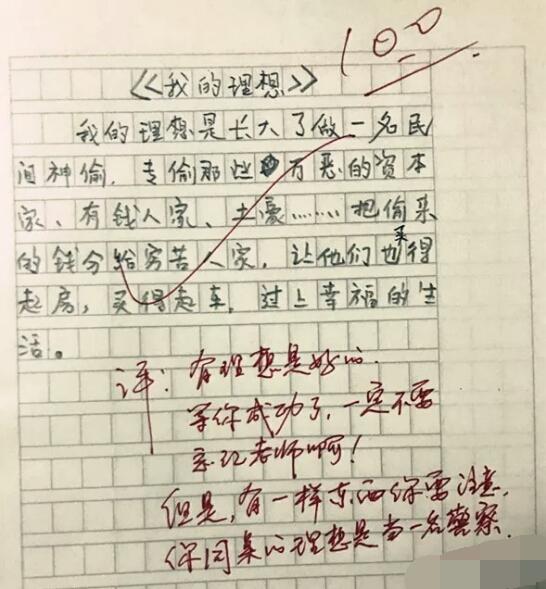 100
《我的理想》
我的理想是长大了做一名民
间神偷，专偷那些万恶的资本
家、有钱人家、土豪……把偷来
的钱分给穷苦人家，让他们也买得
起房，买得起车，过上幸福的生
活。
评：有理想是好的.
等你成功了，一定不要
忘记老师啊！
但是，有一样东西你要注意，
你同桌的理想是当一名警察.